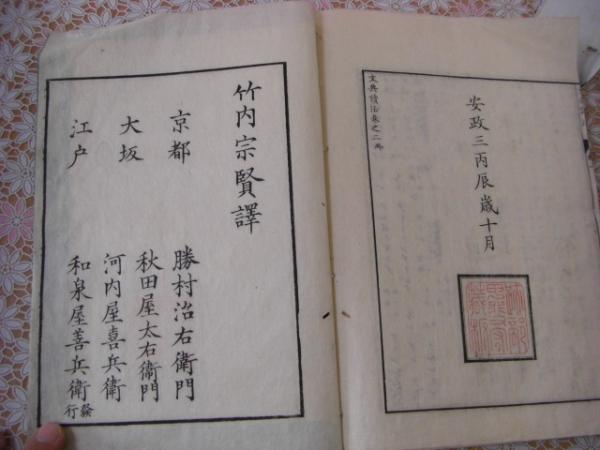 文典讀法巻之二
安政三丙辰歳十月
竹内宗賢譯
京都
勝村治右衛門
大坂
秋田屋太右衛門
河内屋喜兵衛
江戸
和泉屋善兵衛
發行